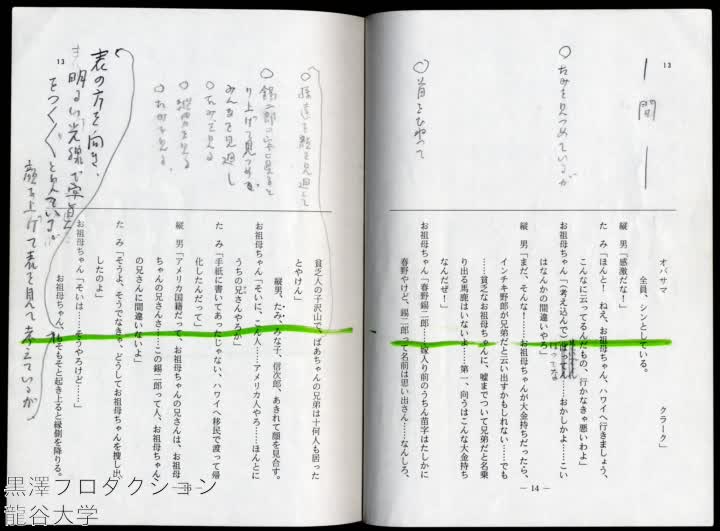 13
―間―
○たみを見つめているが
○首をひねって
オバサマ
クラーク」
全員、シンとしている。
縦　男「感激だな！」
た　み「ほんと！　ねえ、お祖母ちゃん、ハワイへ行きましょう、
こんなに云ってるんだもの、行かなきゃ悪いわよ」
お祖母ちゃん「（考え込んで）
……おかしかよ……こい
はなんかの間違いやろ」
縦　男「まだ、そんな！……お祖母ちゃんが大金持ちだったら、
インチキ野郎が兄弟だと云い出すかもしれない……でも
……貧乏なお祖母ちゃんに、嘘までついて兄弟だと名乗
り出る馬鹿はいないよ……第一、向うはこんな大金持ち
なんだぜ！」
お祖母ちゃん「春野錫二郎……嫁入り前のうちん苗字はたしかに
春野やけど、錫二郎って名前は思い出さん……なんしろ、
― 14 ―
13
○錫二郎の写真を
取り上げて見つめ
みんなを見廻し
○たみを見る
○縦男を見る
○たみを見る
表の方を向き、
明るい光線で写真
をつくづくと
顔を上げて表を見て考えているが
貧乏人の子沢山で、ばあちゃんの兄弟は十何人も居った
とやけん」
縦男、たみ、みな子、信次郎、あきれて顔を見合す。
お祖母ちゃん「そいに、こん人……アメリカ人やろ……ほんとに
うちの兄さんやろか」
た　み「手紙に書いてあったじゃない、ハワイへ移民で渡って帰
化したんだって」
縦　男「アメリカ国籍だって、お祖母ちゃんの兄さんは、お祖母
ちゃんの兄さんさ……この錫二郎って人、お祖母ちゃん
の兄さんに間違いないよ」
た　み「そうよ、そうでなきゃ、どうしてお祖母ちゃんを捜し出
したのよ」
お祖母ちゃん「そいは……そうやろけど……」
お祖母ちゃん、もそもそと起き上ると縁側を降りる。
― 15 ―
黒澤プロダクション
龍谷大学